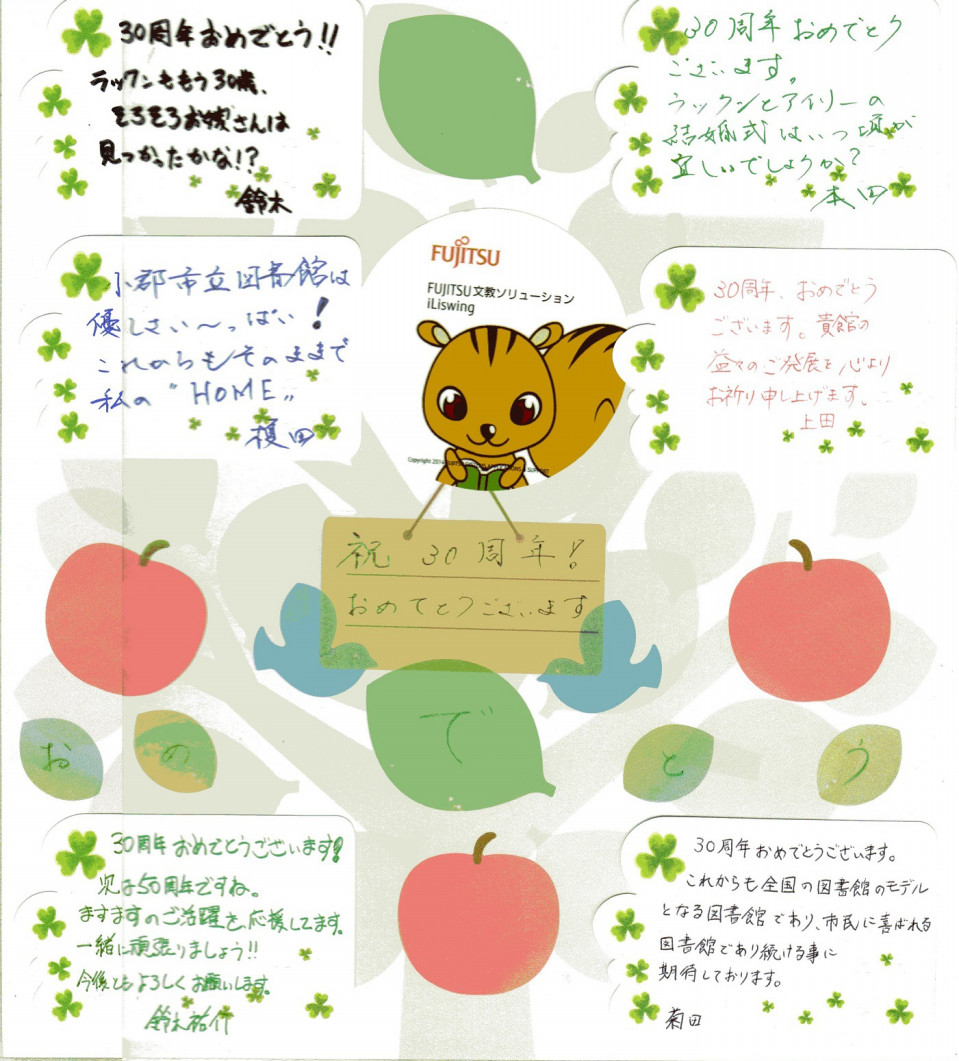 30周年おめでとう!!
ラックンももう30歳、
そろそろお嫁さんは
見つかったかな!?
鈴木
30周年おめでとう
ございます。
ラックンとアイリーの
結婚式はいつ頃が
宜しいでしょうか?
本田
小郡市立図書館は
優しさい〜っぱい!
これからもそのままで
私の"HOME"
榎田
FUJITSU
FUJITSU 文教ソリューション
iLiswing
30周年、おめでとう
ございます。貴館の
益々のご発展を心より
お祈り申し上げます。
上田
祝 30周年!
おめでとうございます
おめでとう
30周年おめでとうございます!
次は50周年ですね。
ますますのご活躍を応援してます。
一緒に頑張りましょう!!
今後ともよろしくお願いします。
鈴木祐介
30周年おめでとうございます。
これからも全国の図書館のモデル
となる図書館であり、市民に喜ばれる
図書館であり続ける事に
期待しております。
菊田